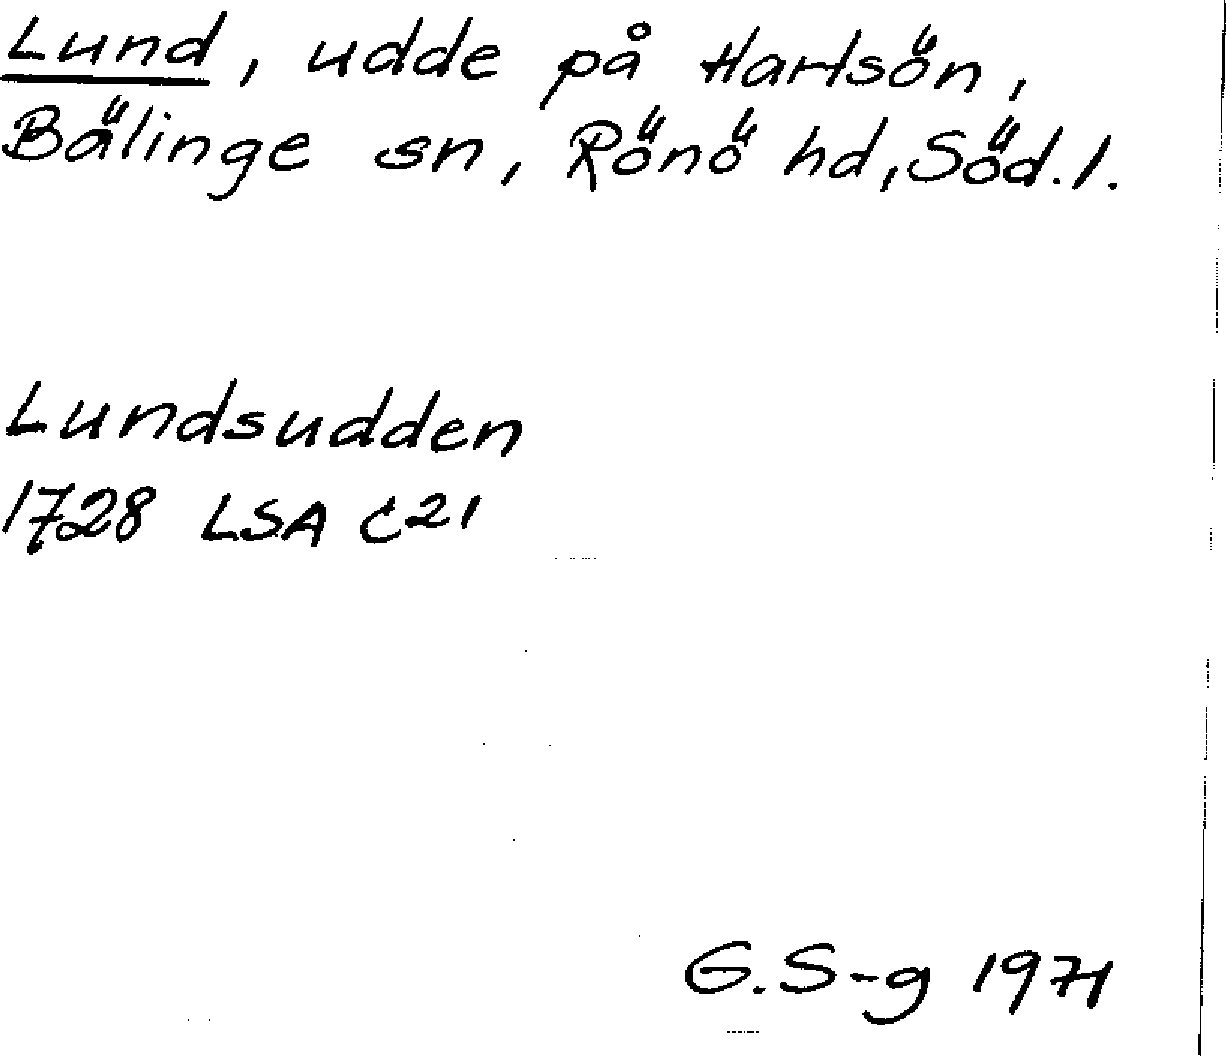 Lund, udde på Hartsön,
Bälinge sn, Rönö hd, Söd.l.
Lundsudden
1728 LSA C21
G.S-g 1971